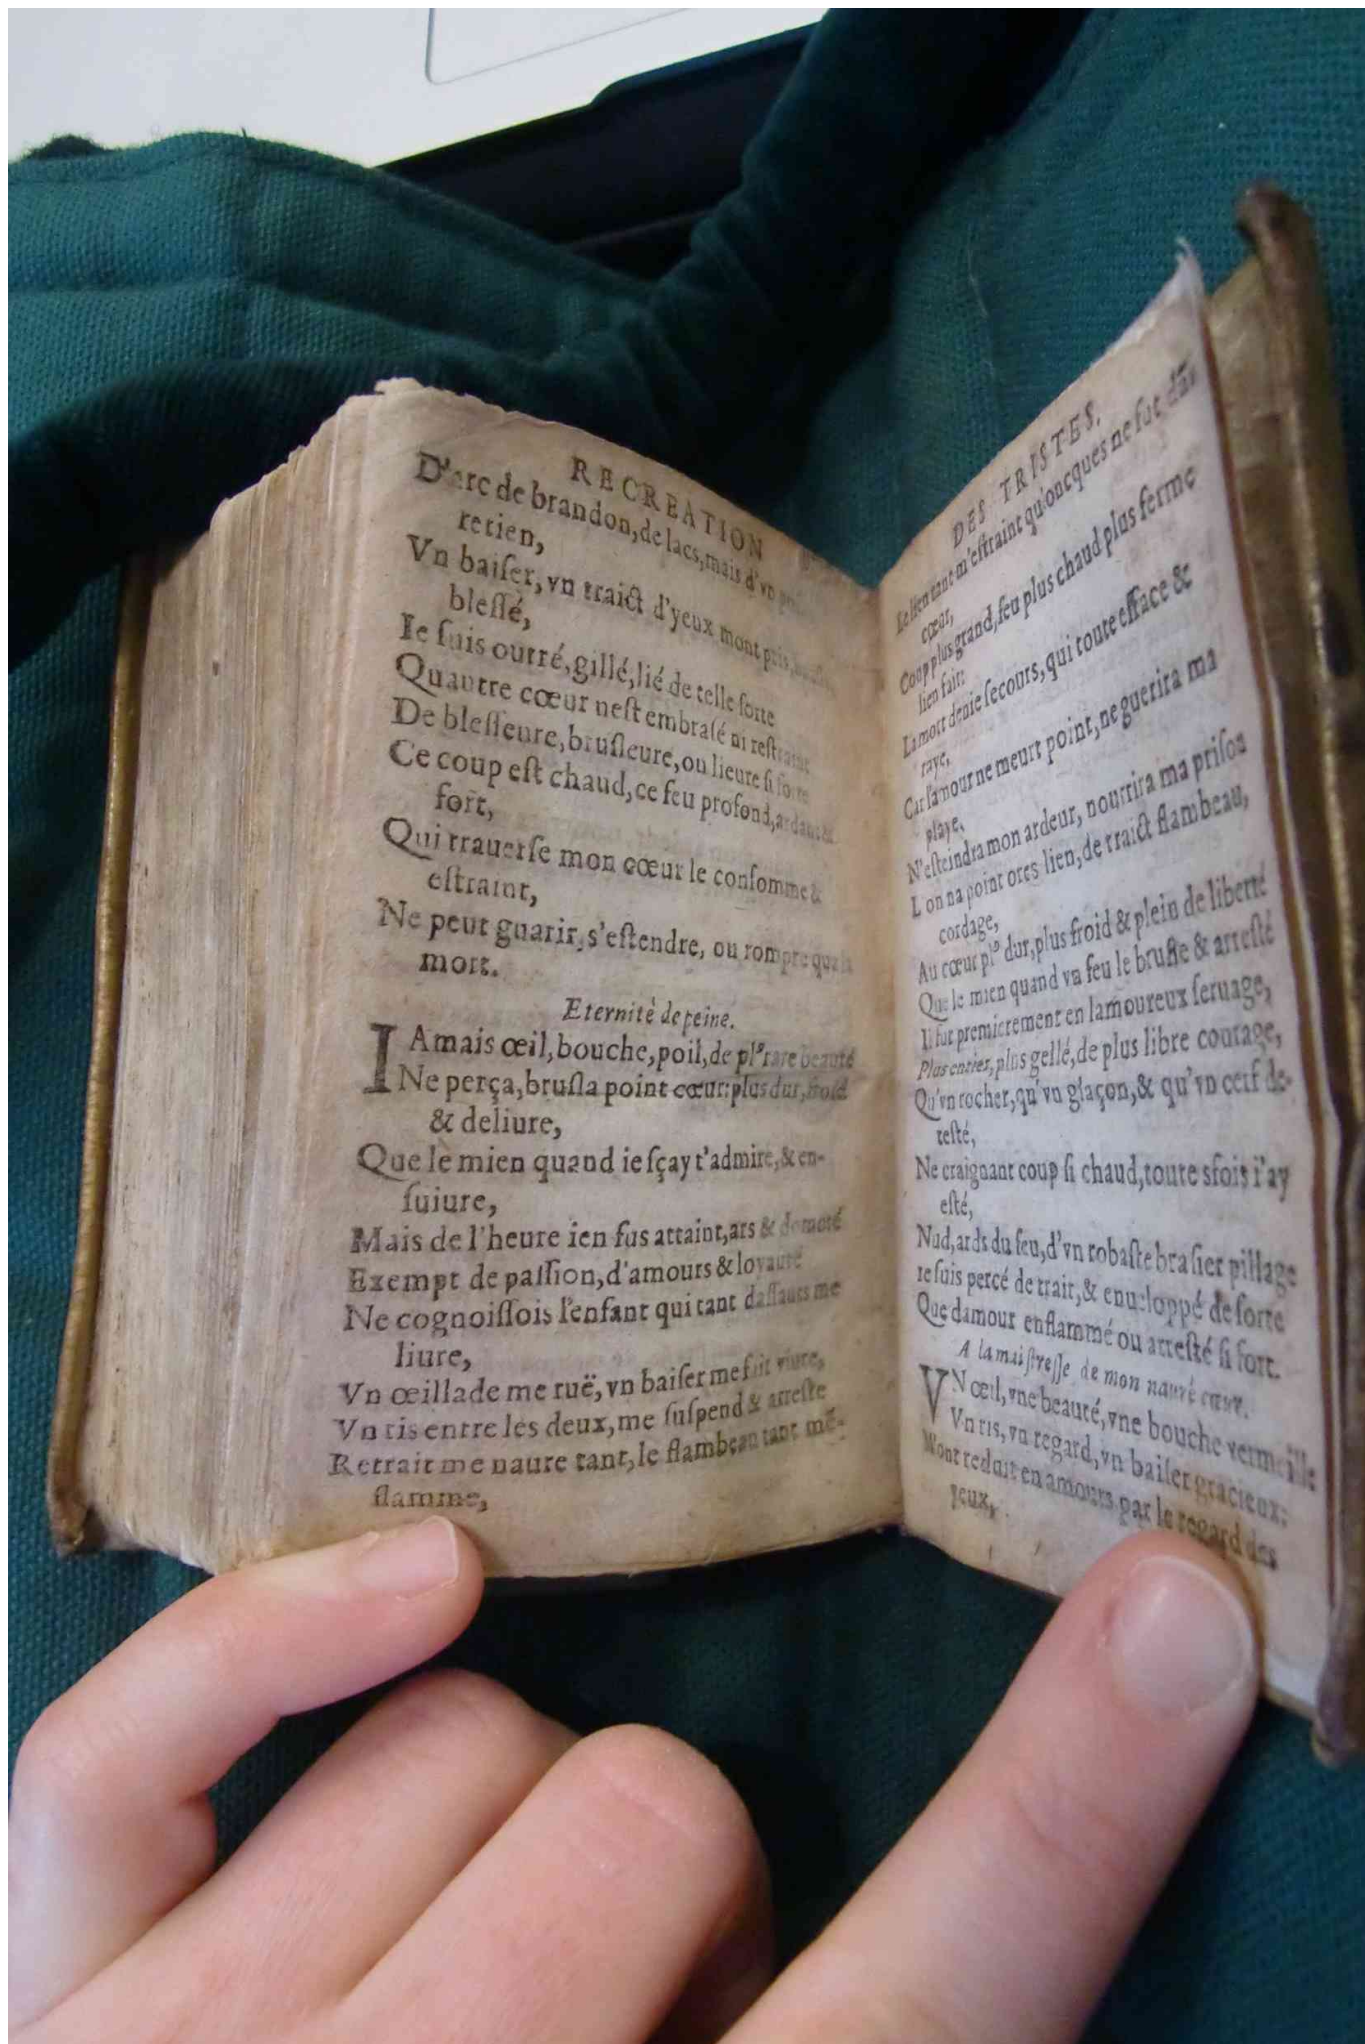 RECREATION
D'arc de brandon, de lacs, mais d'vn
retien,
Vn baiſer, vn traict d'yeux mont pris,
bleſſé,
Ie ſuis outré, gillé, lié de telle ſorte
Quautre cœur neſt embraſé ni reſtraint
De bleſſeure, bruſleure, ou lieure ſi forte
Ce coup eſt chaud, ce feu profond, ardant &
fort,
Qui trauerſe mon cœur le conſomme &
eſtraint,
Ne peut guarir, s'eſtendre, ou rompre que la
mort.
Eternité de peine.
IAmais œil, bouche, poil, de plꝰ rare beauté
Ne perça, bruſla point cœur: plus dur, froid
& deliure,
Que le mien quand ie ſçay t'admire, & en-
ſuiure,
Mais de l'heure ien fus attaint, ars & domté
Exempt de paſſion, d'amours & loyauté
Ne cognoiſſois l'enfant qui tant daſſauts me
liure,
Vn œillade me ruë, vn baiſer me fait viure,
Vn ris entre les deux, me ſuſpend & arreſte
Retrait me naure tant, le flambeau tant mē-
flamme,
DES TRISTES.
Le lien tant m'eſtraint qu'oncques ne fut dās
cœur,
Coup plus grand, feu plus chaud plus ferme
lien fait:
La mort denie ſecours, qui toute efface &
raye,
Car l'amour ne meurt point, ne guerira ma
playe,
N'eſteindra mon ardeur, nourrira ma priſon
L on na point ores lien, de traict flambeau,
cordage,
Au cœur plꝰ dur, plus froid & plein de liberté
Que le mien quand vn feu le bruſle & arreſté
Il fut premierement en lamoureux ſeruage,
Plus entier, plus gellé, de plus libre courage,
Qu'vn rocher, qu'vn glaçon, & qu'vn cerf de-
teſté,
Ne craignant coup ſi chaud, toute sfois i'ay
eſté,
Nud, ards du feu, d'vn robaſte braſier pillage
Ie ſuis percé de trait, & enueloppé de ſorte
Que damour enflammé ou arreſté ſi fort.
A la maiſtreſſe de mon nauré cœur.
VN œil, vne beauté, vne bouche vermeille
Vn ris, vn regard, vn baiſer gracieux:
Mont reduit en amours par le regard des
yeux,